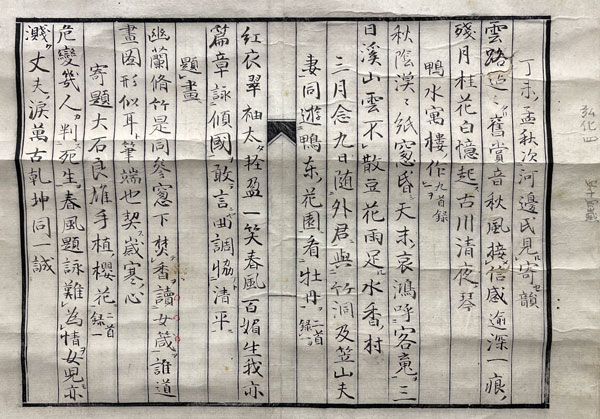 弘化四
丁未孟秋次河邊氏見寄韻
雲路迢〻舊賞音秋風接信感逾深一痕
殘月桂花白憶起古川清夜琴
鴨水寓樓作 九首録
秋陰漠〻紙窓昏天末哀鴻呼客䰟三
日溪山雲不散豆花雨足水香村
三月念九日随外君與竹洞及笠山夫
妻同遊鴨东花園看牡丹 二首録一
紅衣翠袖太輕盈一笑春風百媚生我亦
篇章詠傾國敢言曲調恊清平
題畫
幽蘭脩竹是同參窓下焚香讀女箴誰道
畫圖形似耳筆端也契歳寒心
寄題大石良雄手植櫻花 二首録一
危變幾人判死生春風題詠難為情女児亦
濺丈夫涙萬古乾坤同一誠